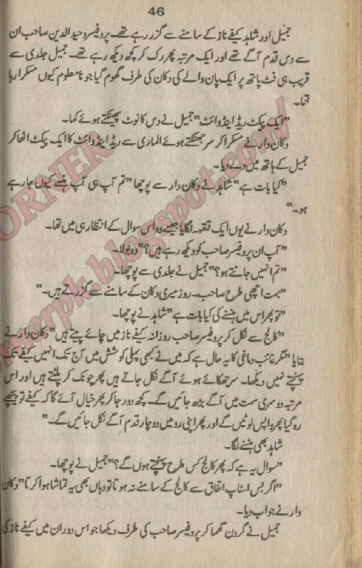 46
جمیل اور شاہد کیفے ناز کے سامنے سے گزر رہے تھے۔ پروفیسر وحید الدین صاحب ان
سے دس قدم آگے تھے اور ایک مرتبہ پھر رک کر کچھ دیکھ رہے تھے۔ جمیل جلدی سے
قریب ہی فٹ پاتھ پر ایک پان والے کی دکان کی طرف گھوم گیا جو نا معلوم کیوں مسکرا رہا
تھا۔
"ایک پیکٹ ریڈ اینڈ وائٹ" جمیل نے دس کا نوٹ پھینکتے ہوئے کہا۔
دکان دار نے مسکرا کر سر جھٹکتے ہوئے الماری سے ریڈ اینڈ وائٹ کا ایک پیکٹ اٹھا کر
جمیل کے ہاتھ میں دے دیا۔
"کیا بات ہے" شاہد نے دکان دار سے پوچھا "تم آپ ہی آپ ہنسے کیوں جا رہے
ہو۔"
دکان دار نے یوں ایک قہقہہ لگایا جیسے وہ اس سوال کے انتظار ہی میں تھا۔
"آپ ان پروفیسر صاحب کو دیکھ رہے ہیں؟" وہ بولا۔
"تم انہیں جانتے ہو؟" جمیل نے جلدی سے پوچھا۔
"بہت اچھی طرح صاحب۔ روز میری دکان کے سامنے سے گزرتے ہیں۔"
"تو پھر اس میں ہنسنے کی کیا بات ہے" شاہد نے پوچھا۔
"کالج سے نکل کر پروفیسر صاحب روزانہ کیفے ناز میں چائے پیتے ہیں" دکان دار نے
بتایا "مگر غائب دماغی کا یہ حال ہے کہ میں نے کبھی پہلی کوشش میں آج تک انہیں کیفے تک
پہنچتے نہیں دیکھا۔ سر جھکائے ہوئے آگے نکل جاتے ہیں پھر چونک کر پلٹتے ہیں اور اس
مرتبہ دوسری سمت میں آگے بڑھ جائیں گے۔ کچھ دور جا کر پھر خیال آئے گا کہ کیفے تو پیچھے
رہ گیا پھر واپس لوٹیں گے اور پھر اپنی رو میں دو چار قدم آگے نکل جائیں گے۔"
شاہد بھی ہنسنے لگا۔
"سوال یہ ہے کہ پھر کالج کس طرح پہنچتے ہوں گے؟" جمیل نے پوچھا۔
"اگر بس اسٹاپ اتفاق سے کالج کے سامنے نہ ہوتا تو وہاں بھی یہ تماشا ہوا کرتا" دکان
دار نے جواب دیا۔
جمیل نے گردن گھما کر پروفیسر صاحب کی طرف دیکھا جو اس دوران میں کیفے ناز کی